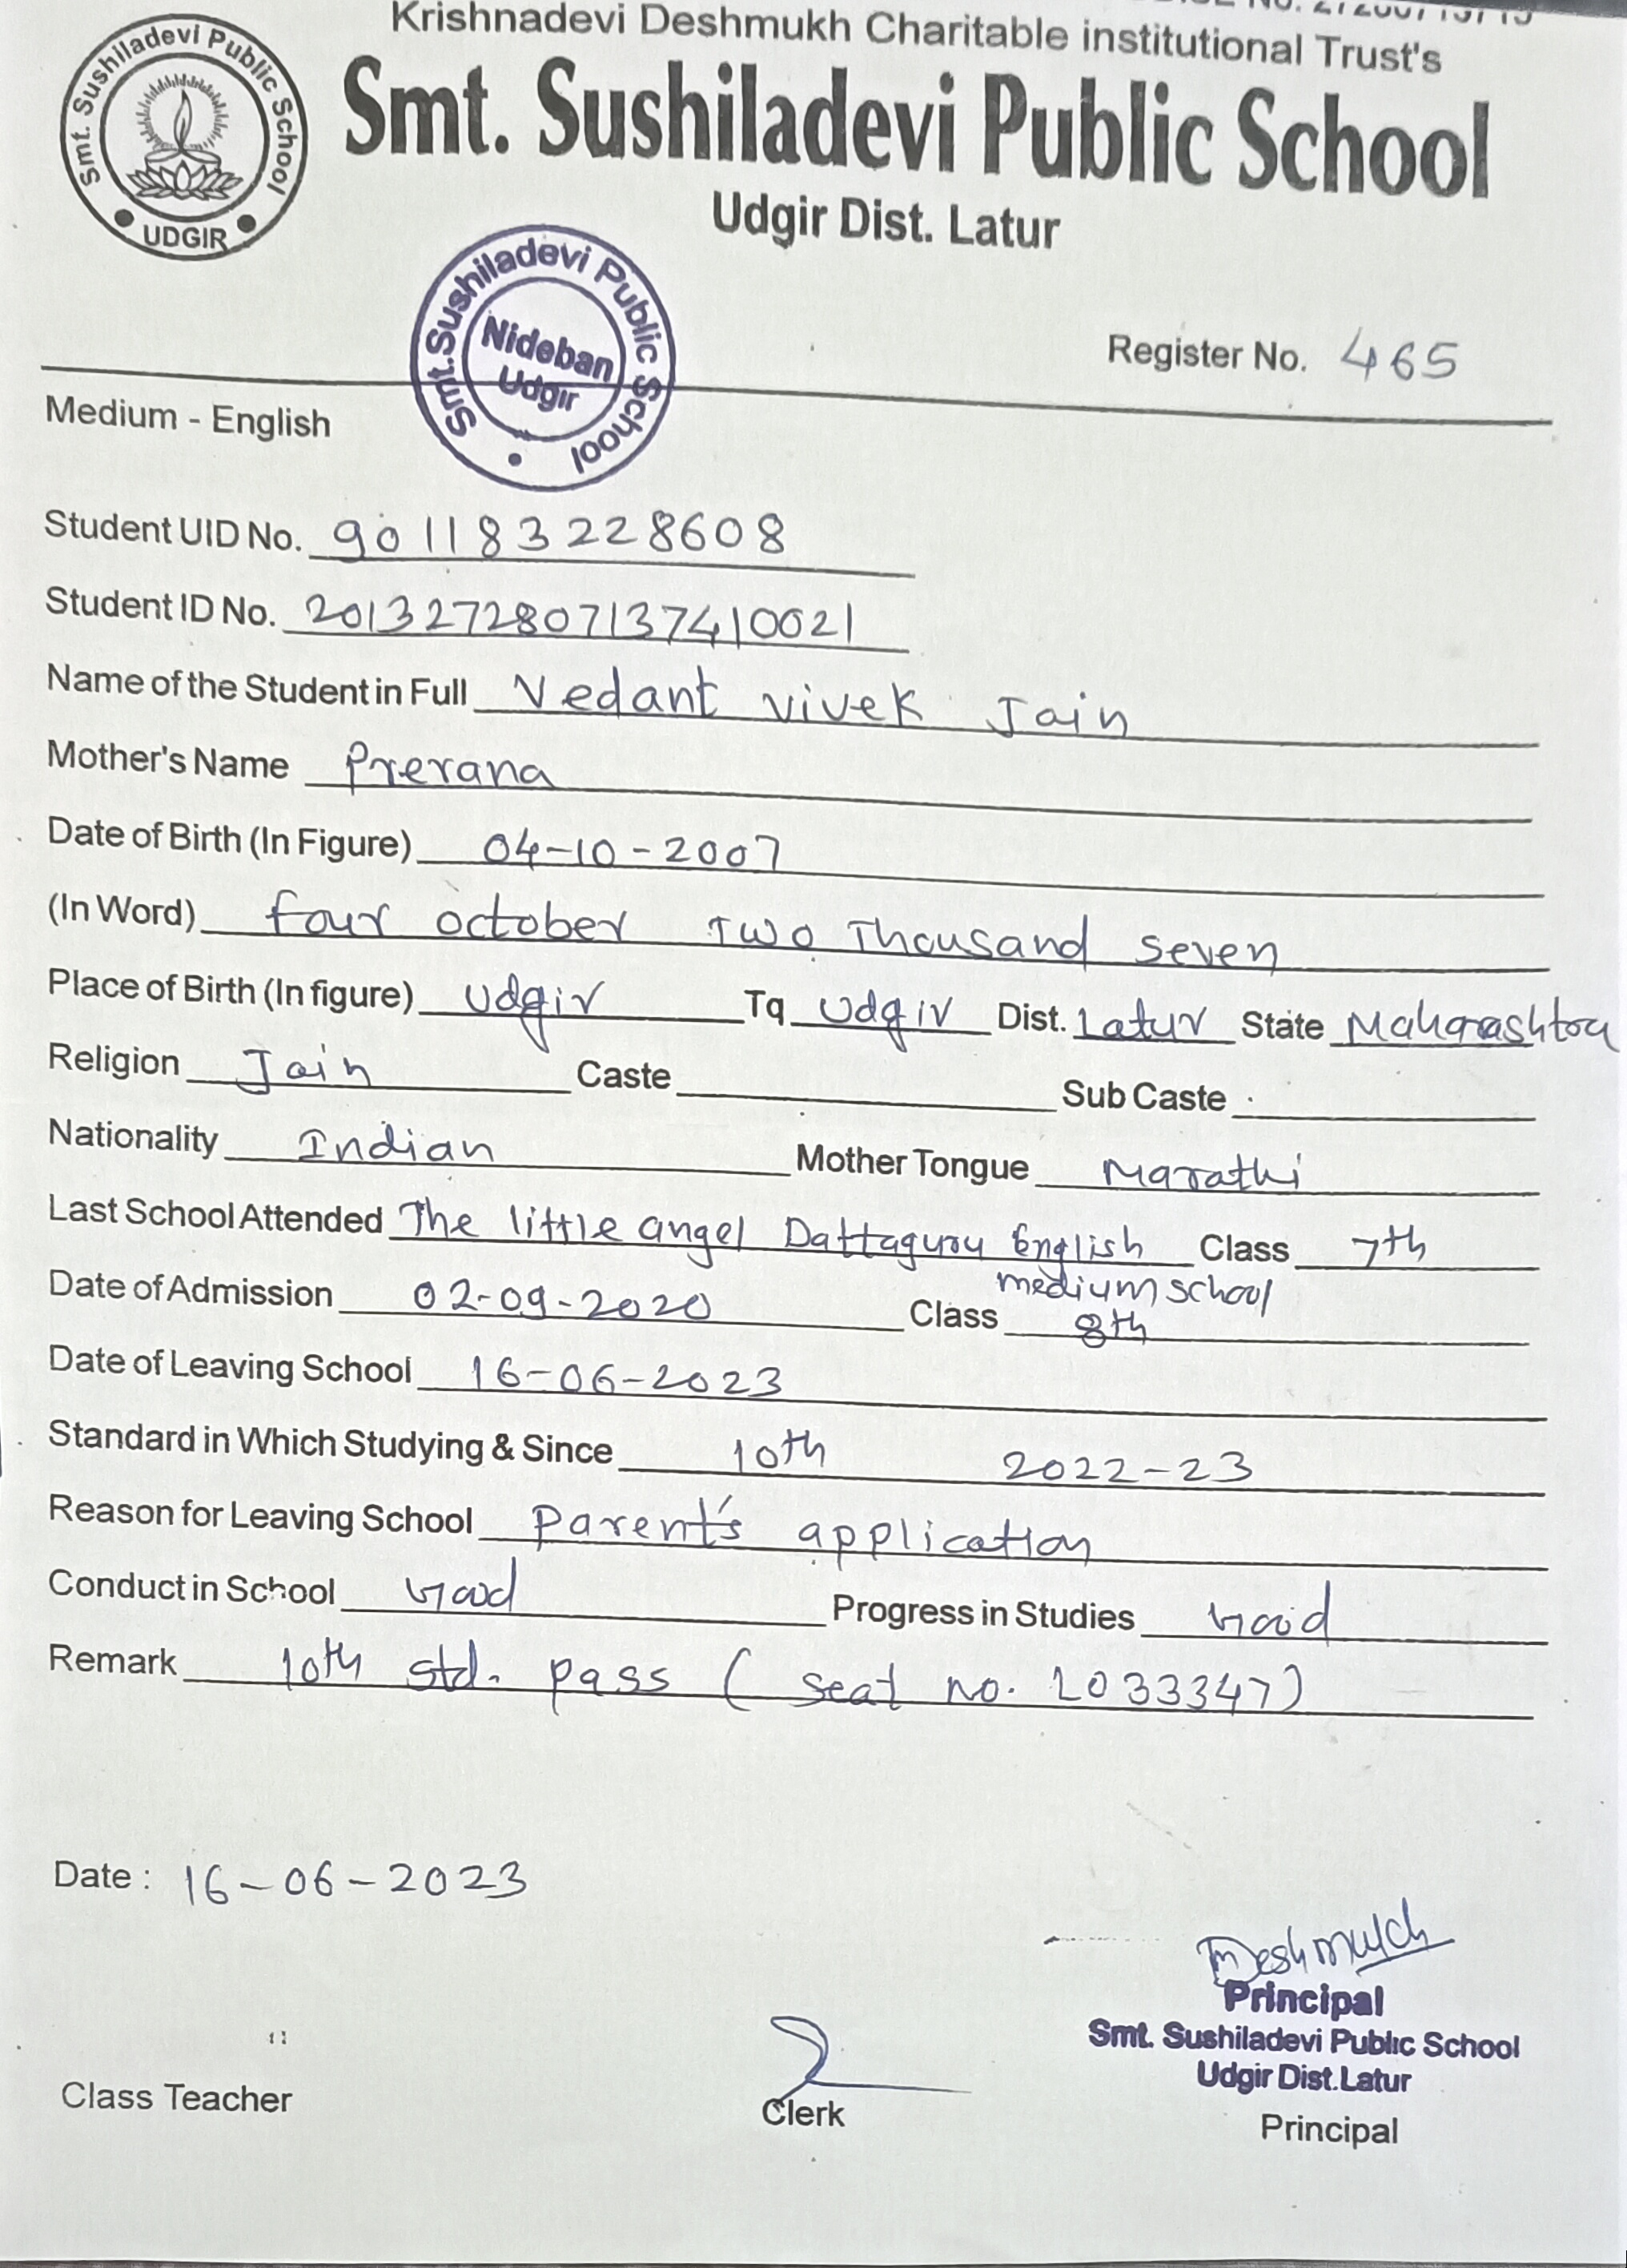 Krishnadevi Deshmukh Charitable institutional Trust's
Smt. Sushiladevi Public School
UDGIR
Smt. Sushiladevi Public School
Udgir Dist. Latur
Smt. Sushiladevi Public School
Nideban
Udgir
Register No. 465
Medium - English
Student UID No. 901183228608
Student ID No. 2013272807137410021
Name of the Student in Full Vedant vivek Jain
Mother's Name Prerana
Date of Birth (In Figure) 04-10-2007
(In Word) four october Two Thousand seven
Place of Birth (In figure) Udgir Tq Udgir Dist. Latur State Maharashtra
Religion Jain Caste Sub Caste
Nationality Indian Mother Tongue Marathi
Last School Attended The little angel Dattaguru English Class 7th
medium school
Date of Admission 02-09-2020 Class 8th
Date of Leaving School 16-06-2023
Standard in Which Studying & Since 10th 2022-23
Reason for Leaving School Parent's application
Conduct in School Good Progress in Studies Good
Remark 10th std. pass ( seat no. L033347)
Date : 16-06-2023
Deshmukh
Principal
Smt. Sushiladevi Public School
Udgir Dist.Latur
Class Teacher
Clerk
Principal